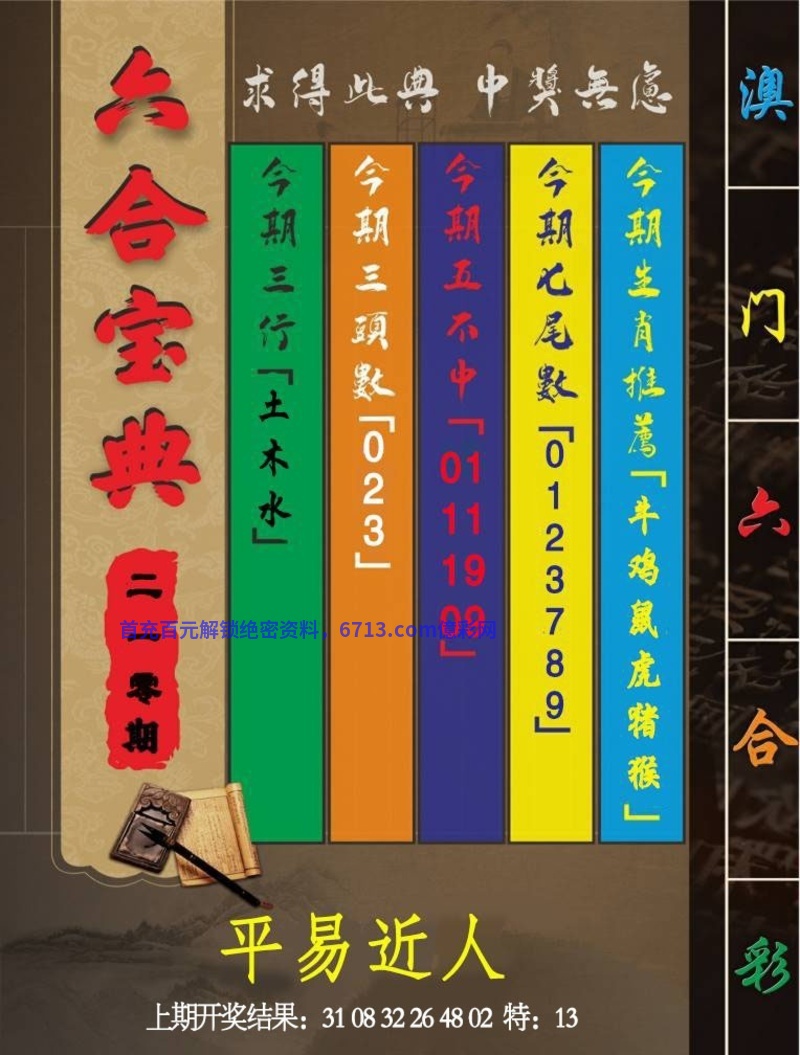 六合宝典
二一零期
求得此典 中獎無慮
今期三行「土木水」
今期三頭數「023」
今期五不中「01 11 19 09」
今期七尾數「0123789」
今期生肖推薦「牛鸡鼠虎猪猴」
澳门六合彩
首充百元解锁绝密资料，6713.com億彩网
平易近人
上期开奖结果：31 08 32 26 48 02 特：13